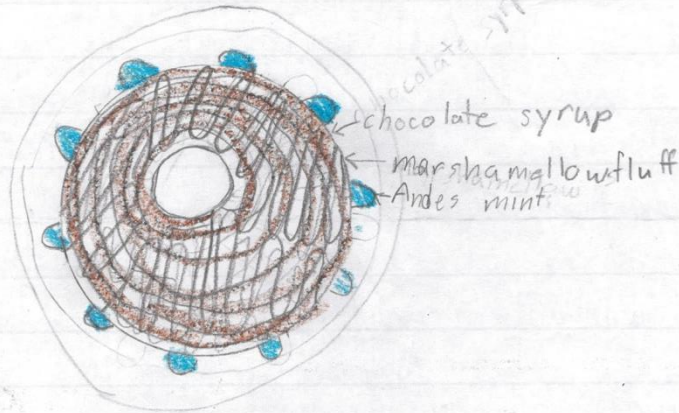 chocolate syrup
marshamellow fluff
Andes mint